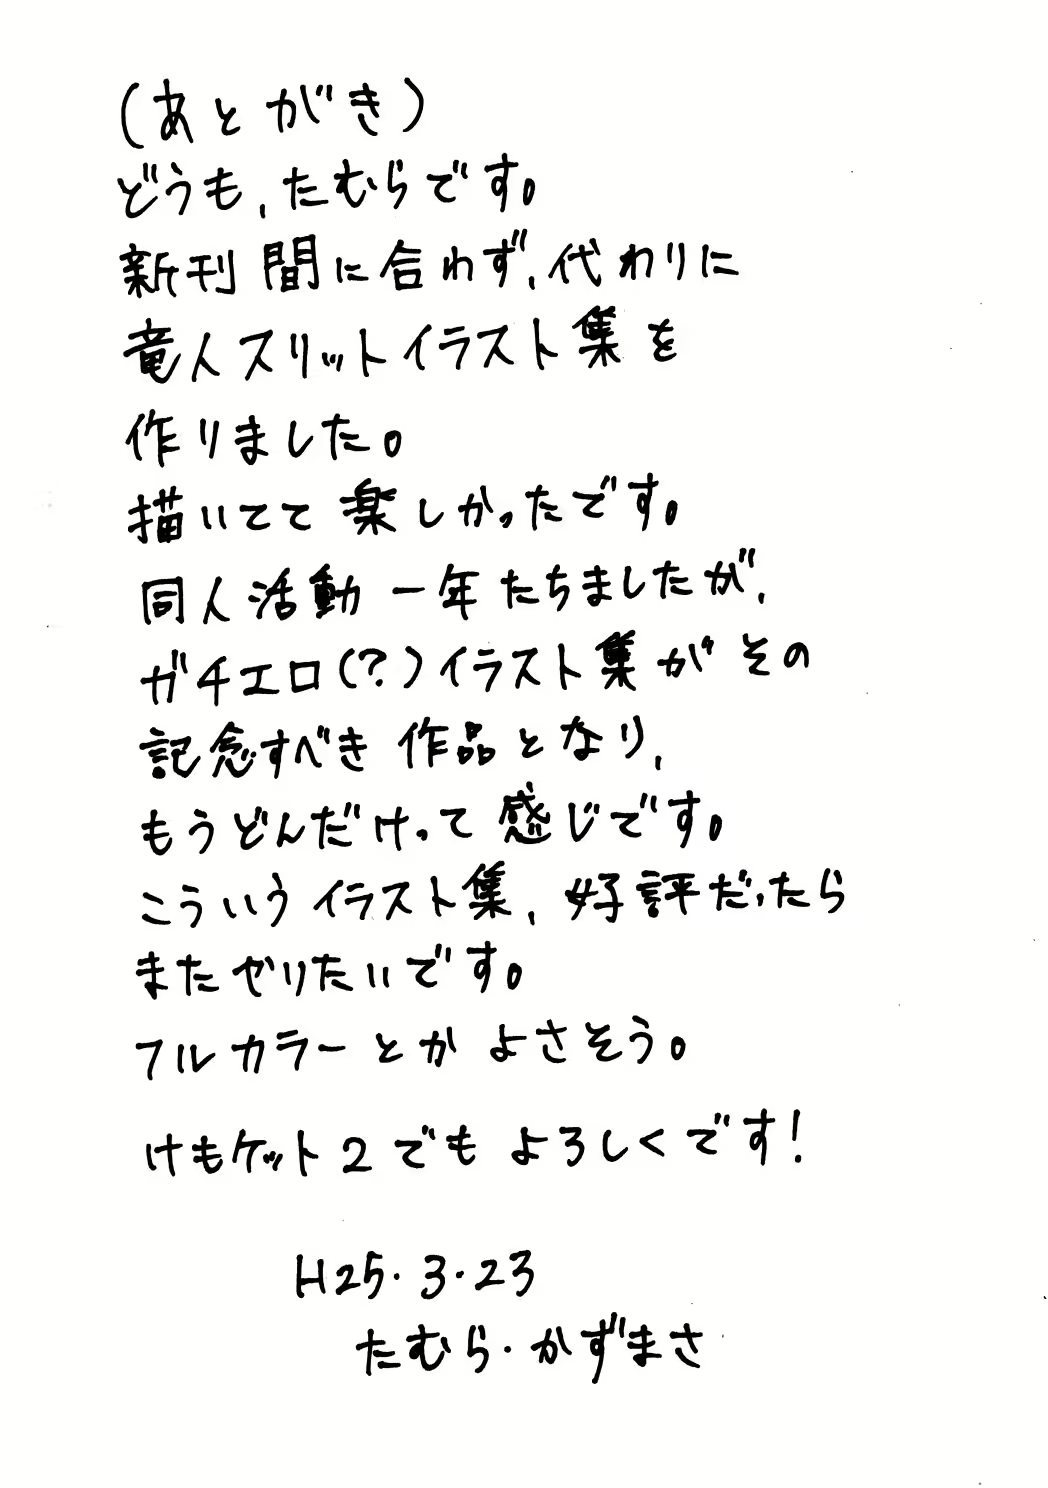 (あとがき)
どうも、たむらです。
新刊間に合わず、代わりに
竜人スリットイラスト集を
作りました。
描いてて楽しかったです。
同人活動一年たちましたが、
ガチエロ(?)イラスト集がその
記念すべき作品となり、
もうどんだけって感じです。
こういうイラスト集、好評だったら
またやりたいです。
フルカラーとかよさそう。
けもケット2でもよろしくです!
H25.3.23
たむら・かずまさ